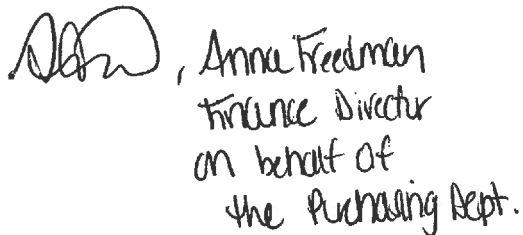 , Anna Freedman
Finance Director
on behalf of
the Purchasing Dept.